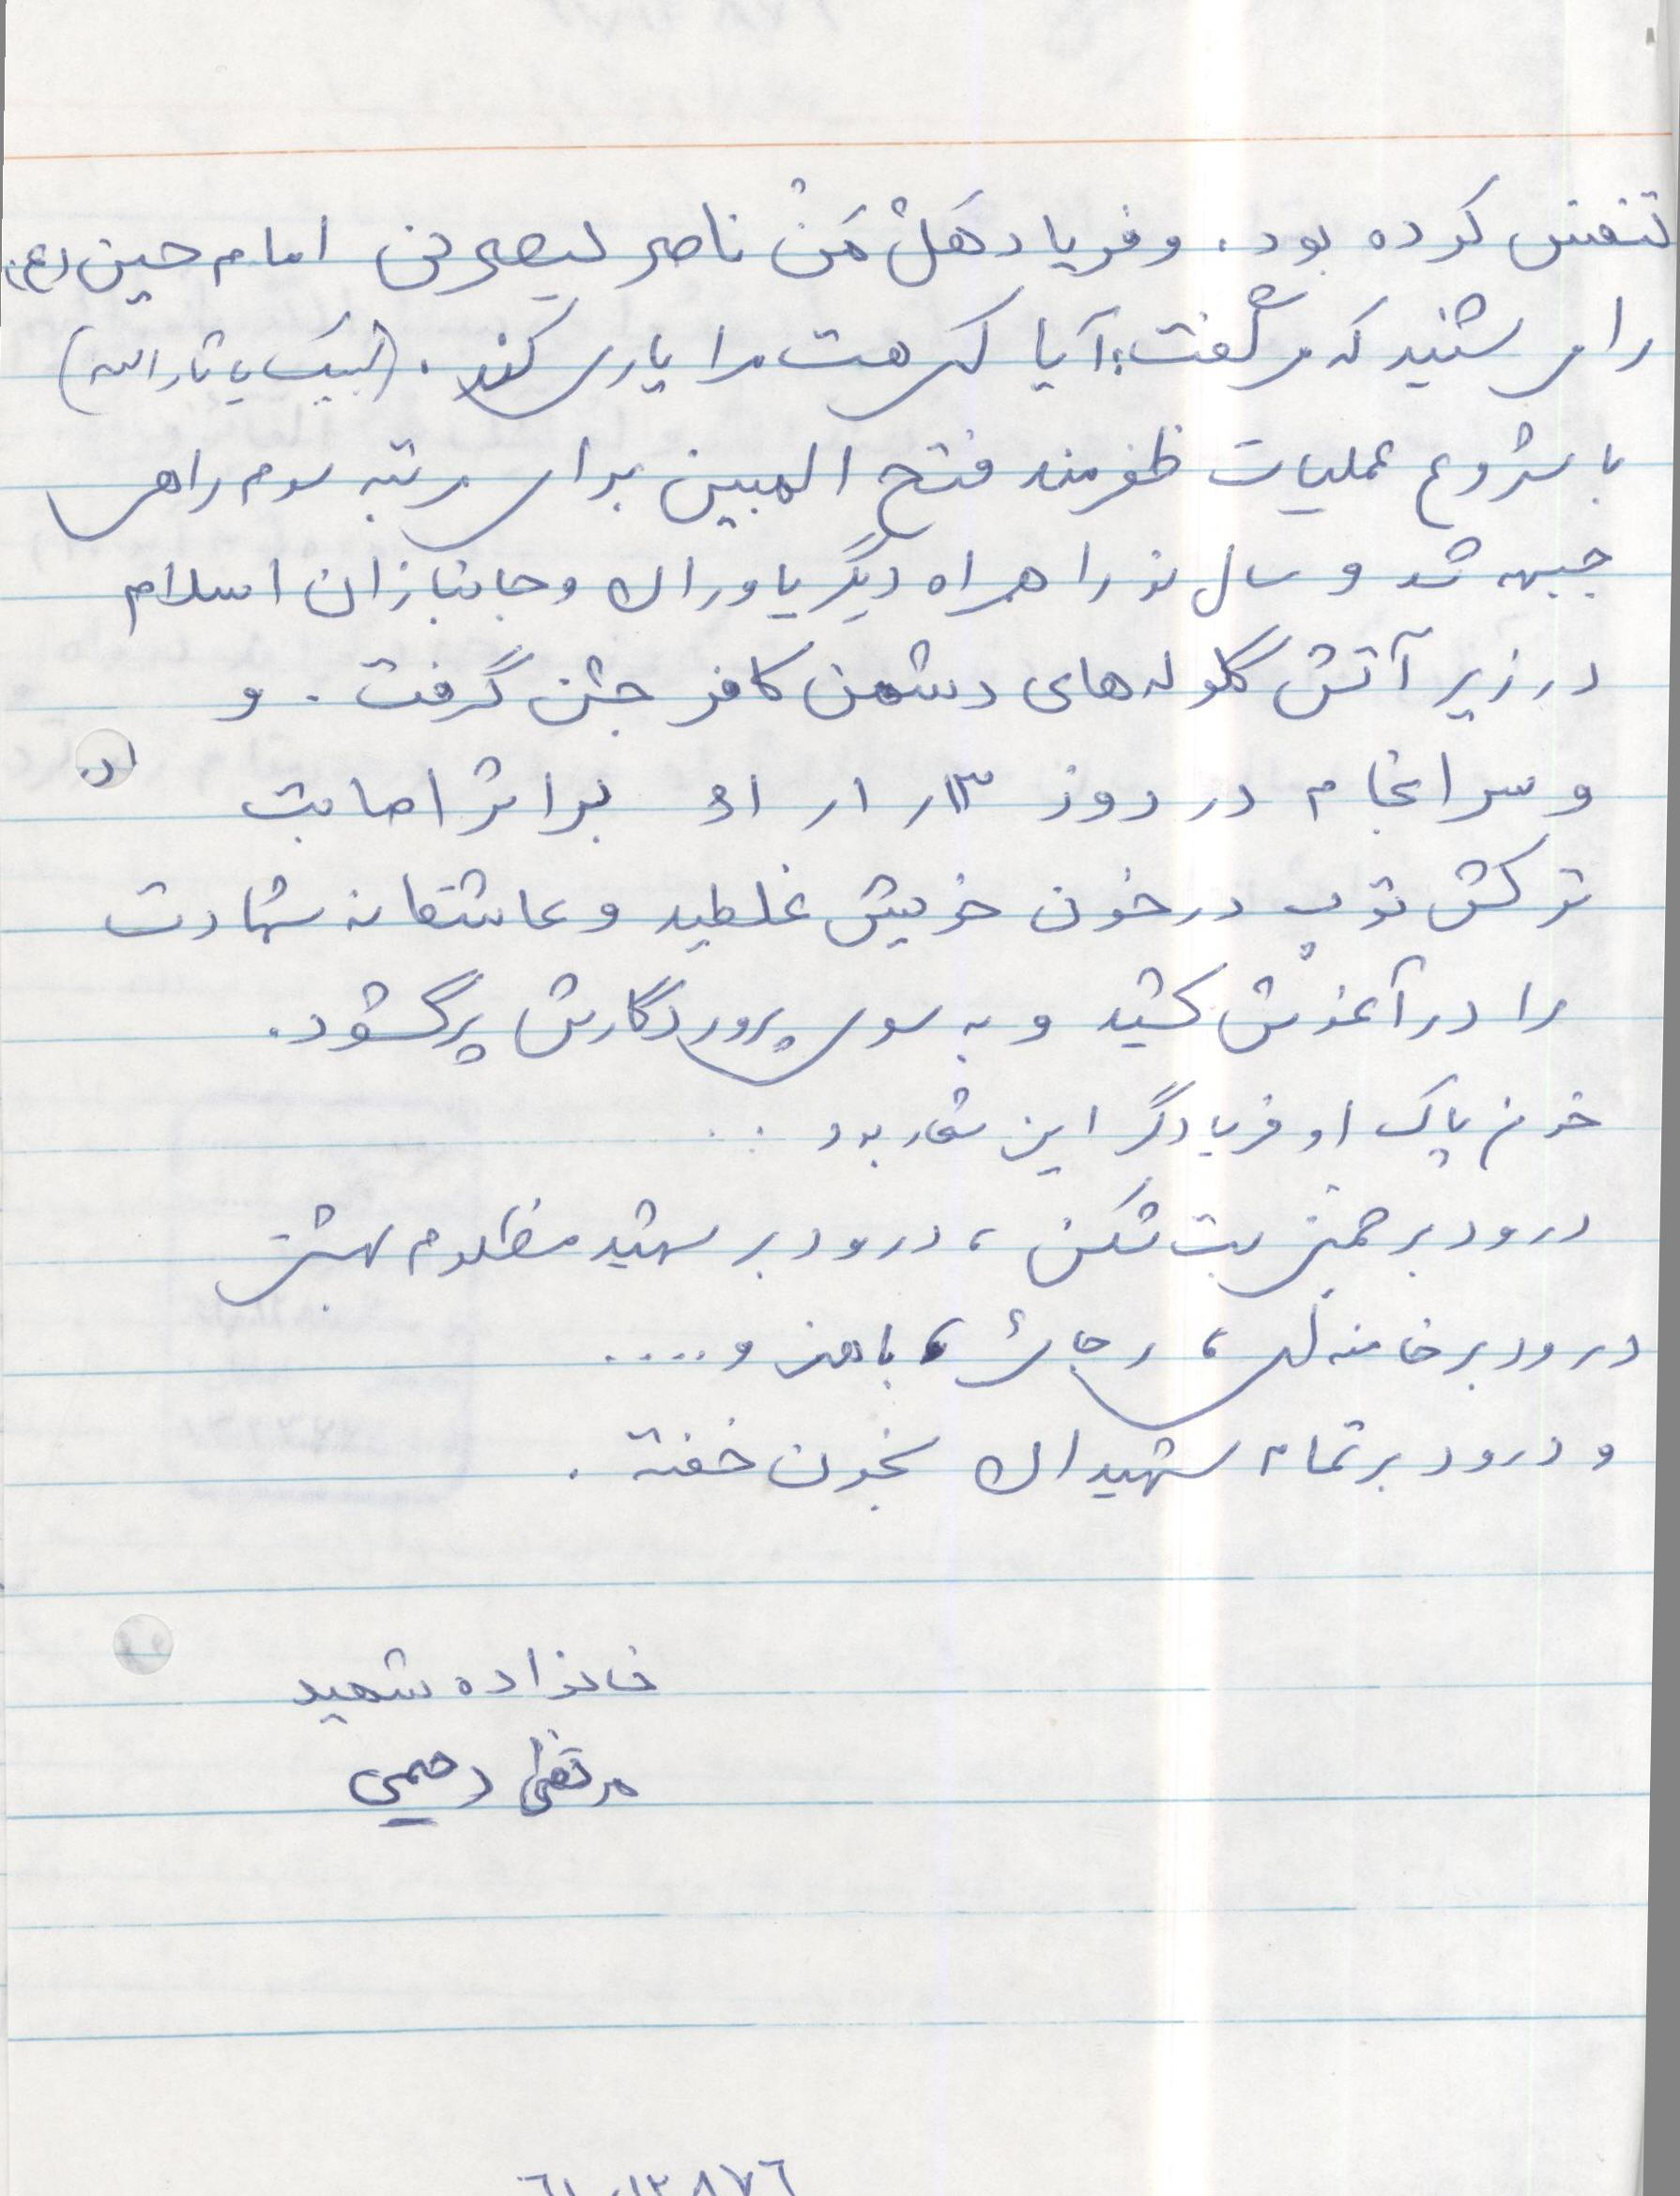 تنفس کرده بود. و فریاد هَلْ مَنْ ناصر ینصرنی امام حسین (ع)
را می شنید که می گفت: آیا کسی هست مرا یاری کند. (لبیک یا ثارالله)
با شروع عملیات ظفرمند فتح المبین برای مرتبه سوم راهی
جبهه شد و سال نو را همراه دیگر یاوران و جانبازان اسلام
در زیر آتش گلوله های دشمن کافر جشن گرفت. و
و سرانجام در روز ۱۳ر ۱ر ۶۱ بر اثر اصابت
ترکش توپ در خون خویش غلطید و عاشقانه شهادت
را در آغوش کشید و به سوی پروردگارش پر گشود.
خون پاک او فریادگر این شعار بود ...
درود بر خمینی بت شکن، درود بر شهید مظلوم بهشتی
درود بر خامنه ای، رجائی، باهنر و....
و درود بر تمام شهیدان بخون خفته.
خانواده شهید
مرتضی رحیمی